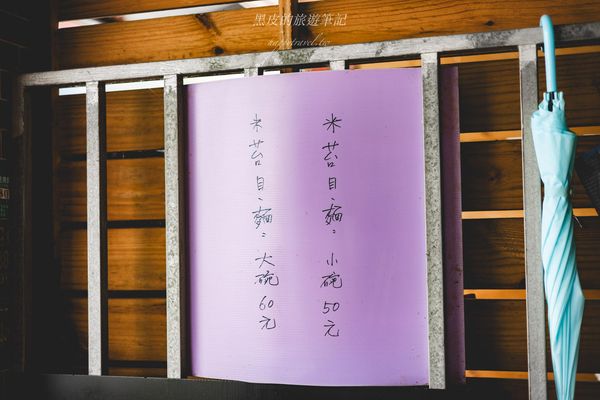 黑皮的旅遊筆記
米苔目、麵：小碗50元
米苔目、麵：大碗60元